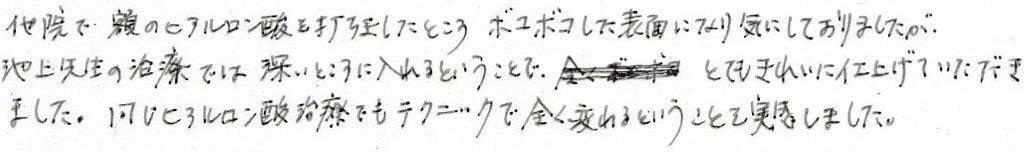 他院で額のヒアルロン酸を打ち注したところ ボコボコした表面になり気にしておりましたが.
池上先生の治療では 深いところに入れるということで. とてもきれいに仕上げていただき
ました。同じヒアルロン酸治療でもテクニックで全く変わるということを実感しました。